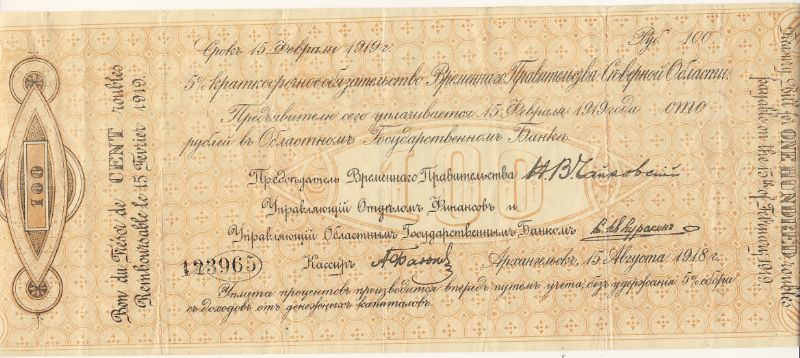 Срокъ 15 Февраля 1919 г.
Руб. 100
5% краткосрочное обязательство Временнаго Правительства Сѣверной Области
Предъявителю сего уплачивается 15 Февраля 1919 года сто
рублей въ Областномъ Государственномъ Банкѣ.
Предсѣдатель Временнаго Правительства Н.В. Чайковскій
Управляющій Отдѣломъ Финансовъ и
Управляющій Областнымъ Государственнымъ Банкомъ
123965
Кассиръ
Архангельскъ, 15 Августа 1918 г.
Уплата процентовъ производится впередъ путемъ учета, безъ удержанія 5% сбора
съ доходовъ отъ денежныхъ капиталовъ.
Bon du Trésor de CENT roubles
Remboursable le 15 Février 1919.
100
100
Treasury Bill for ONE HUNDRED roubles
payable on the 15th of February 1919.